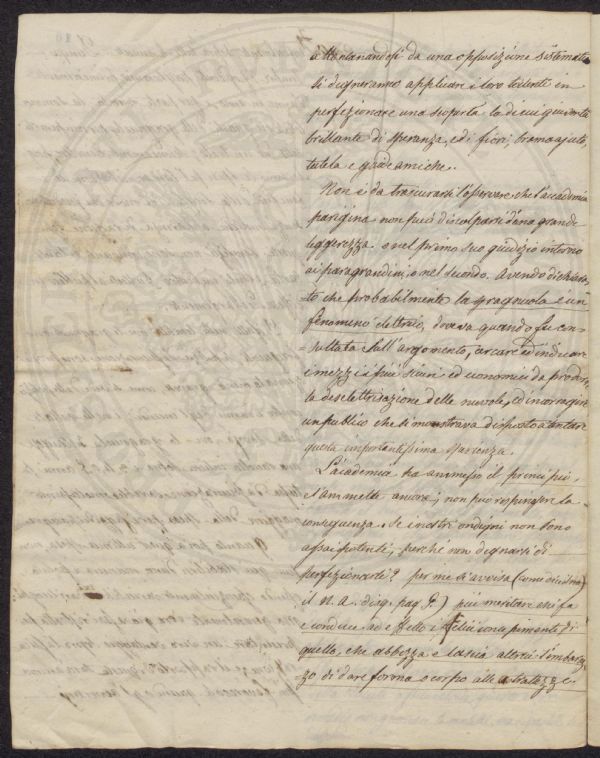 allontanandosi da una opposizione sistematica
si degneranno applicare i loro talenti in
perfezionare una scoperta la di cui gioventù
brillante di speranza, e di fiori, brama ajuto,
tutela e guide amiche.
Non è da trascurarsi l'osservare che l'accademia
parigina non può discolparsi d'una grande
leggerezza o nel primo suo giudizio intorno
ai paragrandini, o nel secondo. Avendo dichiara-
-to che probabilmente la gragnuola è un
fenomeno elettrico, doveva quando fu con-
-sultata sull'argomento, cercare ed indicare
i mezzi i più sicuri ed economici da produrre
la deselettrisazione delle nuvole, ed incoraggire
un publico che si mostrava disposto a tentare
questa importantissima sperienza.
L'accademia ha ammesso il principio,
e l'ammette ancora; non può respingere la
conseguenza. Se i nostri ordigni non sono
assai potenti, perchè non degnarsi di
perfezionarli? per me d'avviso (come dice
il N. A. disg. pag 9.) più meritare chi fa
e conduce ad effetto e felice compimento di
quello, che abbozza e lascia altrui l'imbaraz-
-zo di dare forma e corpo alle astratezze.